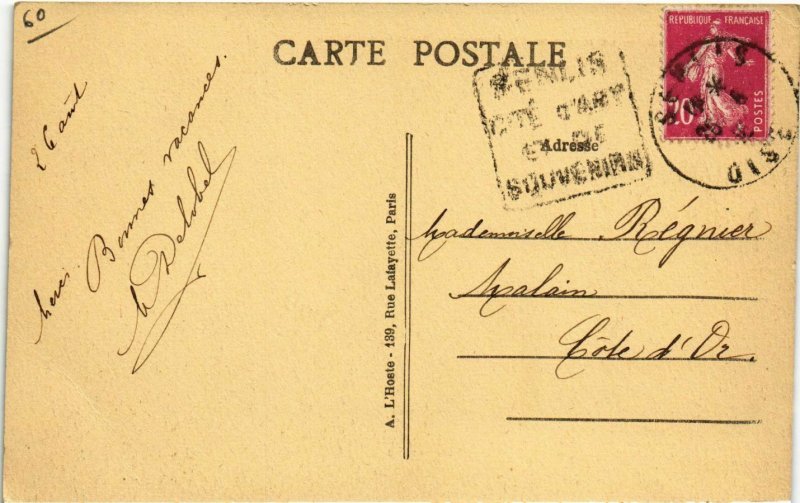 60
CARTE POSTALE
26 août
Bonnes vacances.
Delobel
A. L'Hoste - 139, Rue Lafayette, Paris
SENLIS
CITÉ D'ART
ET DE
SOUVENIRS
Adresse
REPUBLIQUE FRANÇAISE
20
POSTES
SENLIS
OISE
Mademoiselle Régnier
Malain
Côte d'Or.